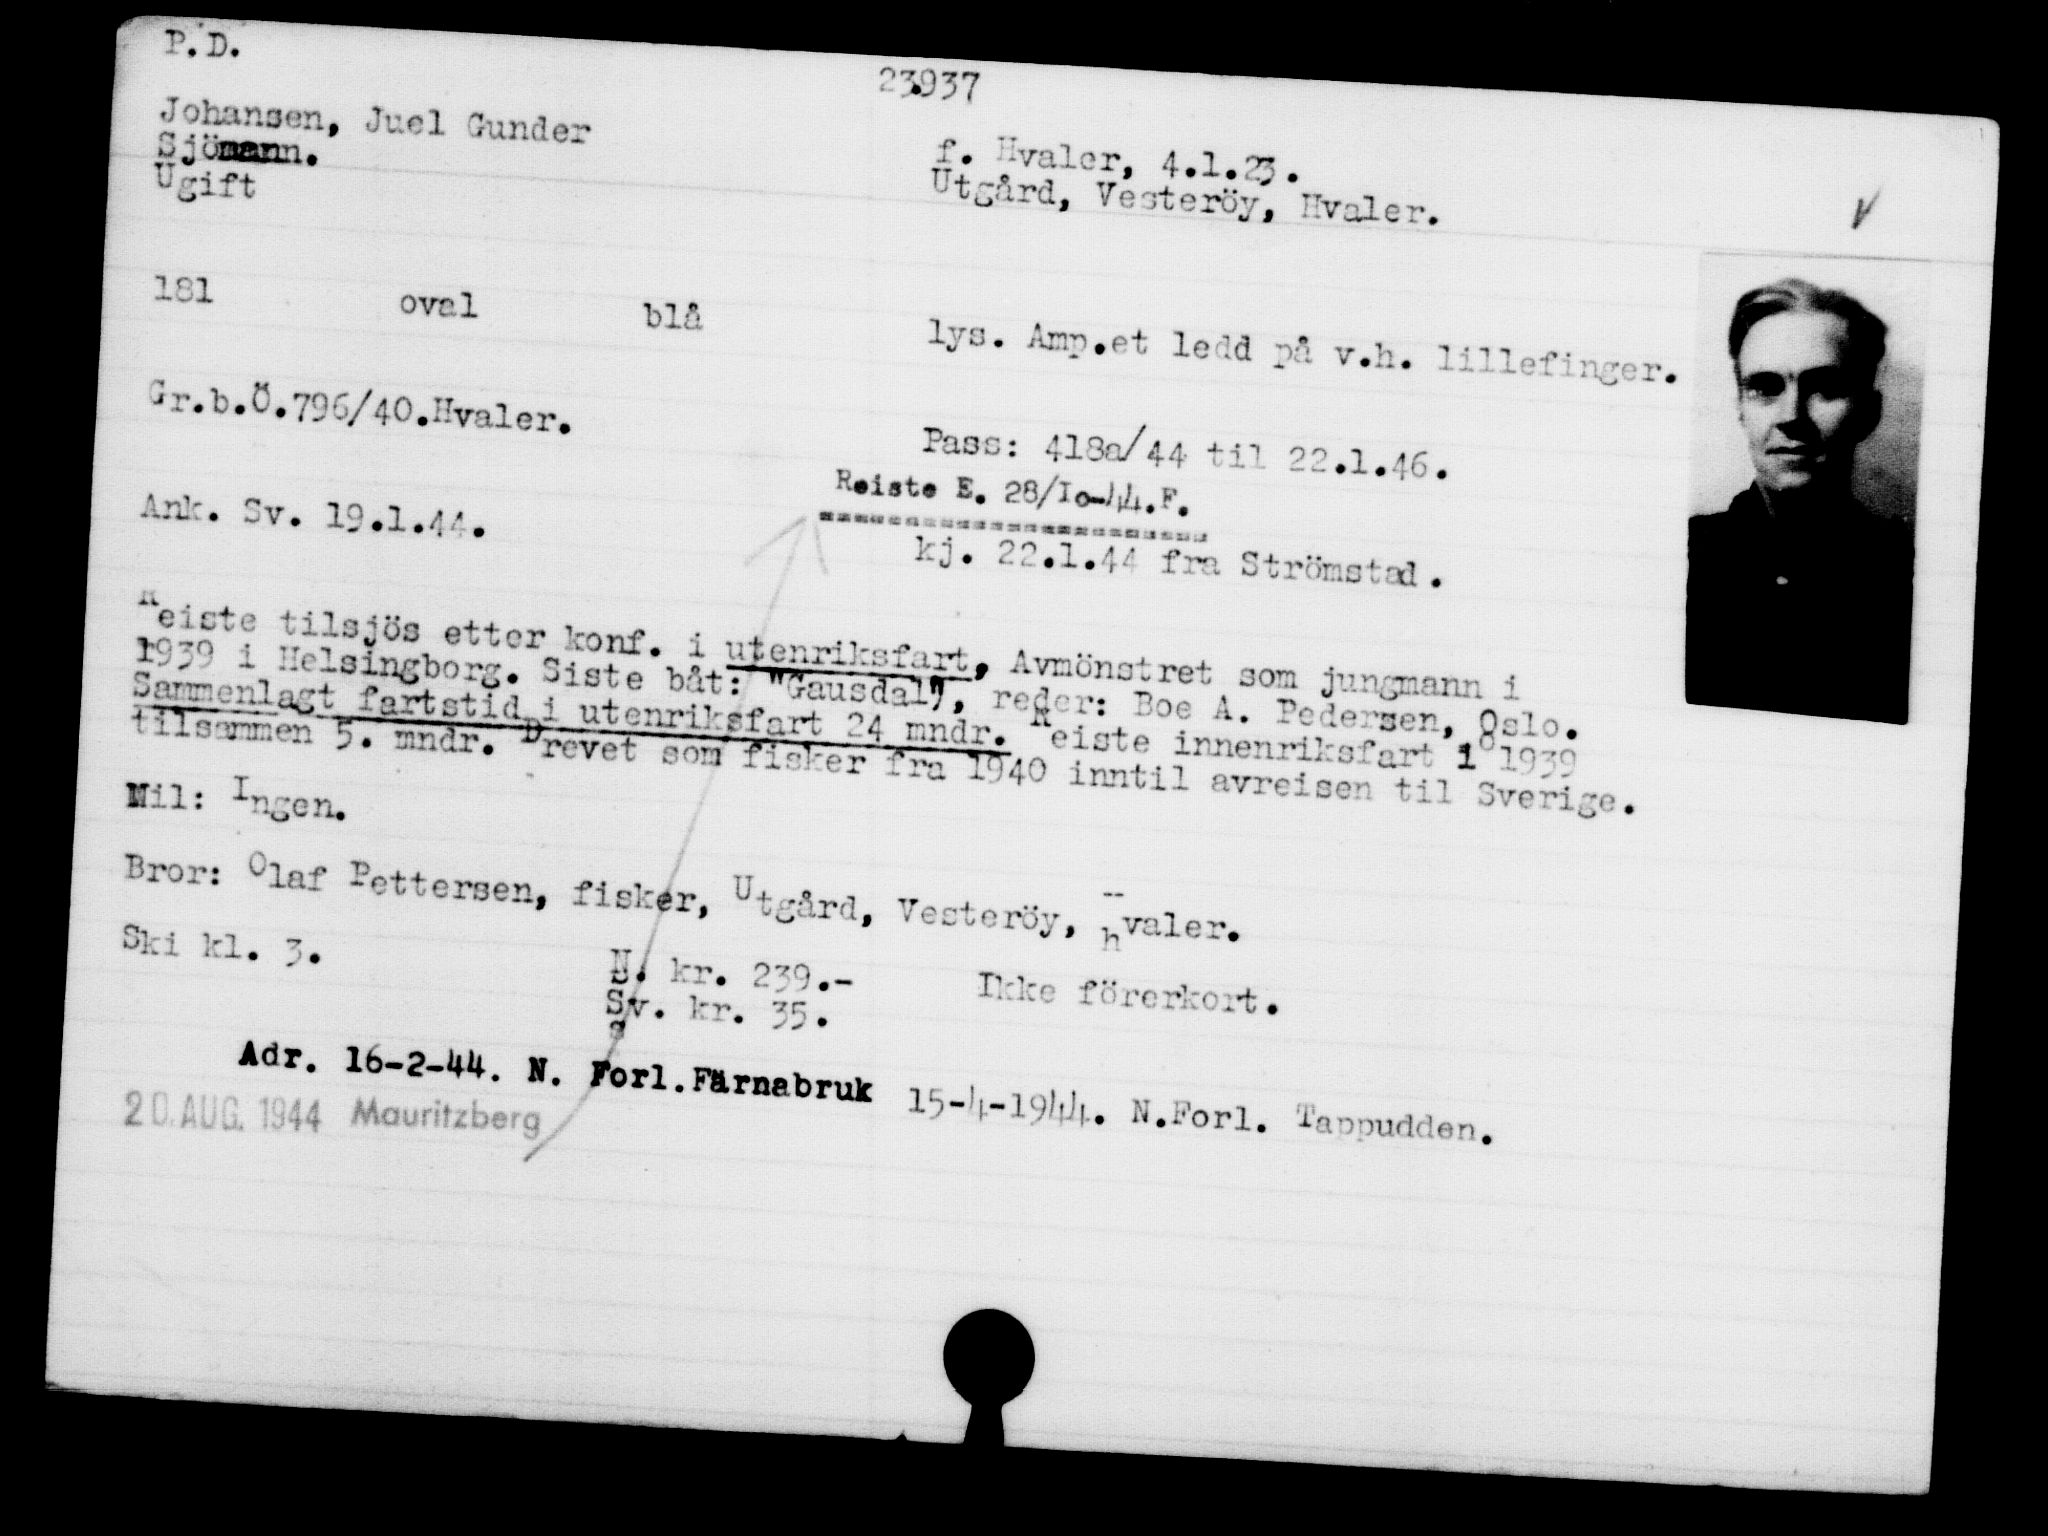 P.D.
23.937
Johansen, Juel Gunder
Sjömann.
f. Hvaler, 4.1.23.
Ugift
Utgård, Vesteröy, Hvaler.
181 oval blå lys. Amp.et ledd på v.h. lillefinger.
Gr.b.Ö.796/40.Hvaler.
Pass: 418a/44 til 22.1.46.
Reiste E. 28/Io-44.F.
Ank. Sv. 19.1.44.
kj. 22.1.44 fra Strömstad.
Reiste tilsjös etter konf. i utenriksfart, Avmönstret som jungmann i
1939 i Helsingborg. Siste båt: "Gausdal", reder: Boe A. Pedersen, Oslo.
Sammenlagt fartstid i utenriksfart 24 mndr. Reiste innenriksfart i 1939
tilsammen 5. mndr. Drevet som fisker fra 1940 inntil avreisen til Sverige.
Mil: Ingen.
Bror: Olaf Pettersen, fisker, Utgård, Vesteröy, hvaler.
Ski kl. 3.
N. kr. 239.-
Ikke förerkort.
Sv. kr. 35.
Adr. 16-2-44. N. Forl.Färnabruk 15-4-1944. N.Forl. Tappudden.
20.AUG.1944 Mauritzberg